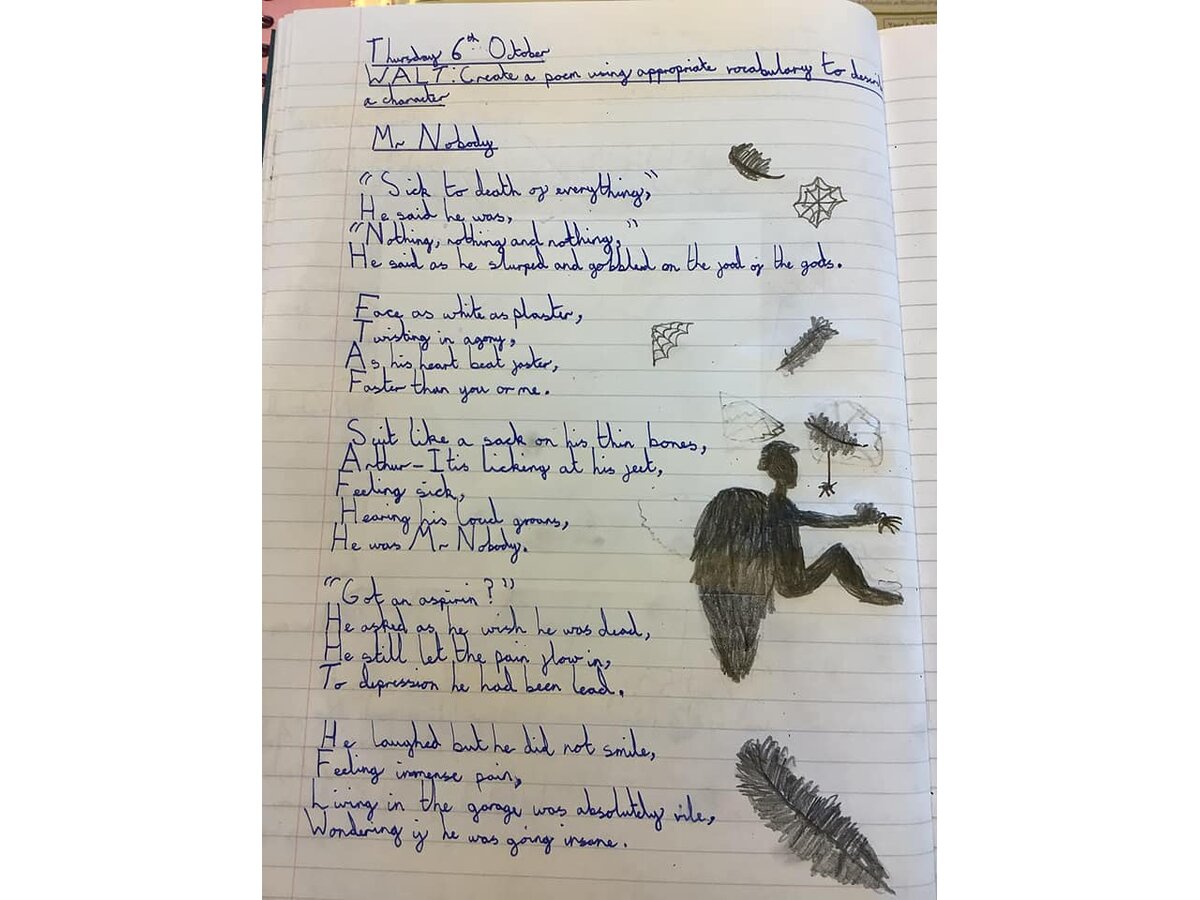 Thursday 6th October
WALT: Create a poem using appropriate vocabulary to
a character
Mr Nobody
"Sick to death of everything,"
He said he was,
"Nothing, nothing and nothing,"
He said as he slurped and gobbled on the food of the gods.
Face as white as plaster,
Twisting in agony,
As his heart beat faster,
Faster than you or me.
Suit like a sack on his thin bones,
Arthur-Itis licking at his feet,
Feeling sick,
Hearing his loud groans,
He was Mr Nobody.
"Got an aspirin?"
He asked as he wish he was dead,
He still let the pain flow in,
To depression he had been lead.
He laughed but he did not smile,
Feeling immense pain,
Living in the garage was absolutely vile,
Wondering if he was going insane.